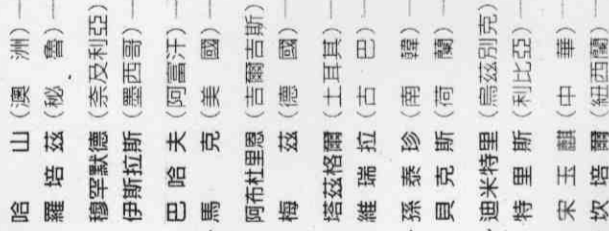 哈山(澳洲)
羅培茲(秘魯)
穆罕默德(奈及利亞)
伊斯拉斯(墨西哥)
巴哈夫(阿富汗)
馬克(美國)
阿布杜里恩(吉爾吉斯)
梅茲(德國)
塔茲格爾(土耳其)
維瑞拉(古巴)
孫泰珍(南韓)
貝克斯(荷蘭)
迪米特里(烏茲別克)
特里斯(利比亞)
宋玉麒(中華)
坎培爾(紐西蘭)